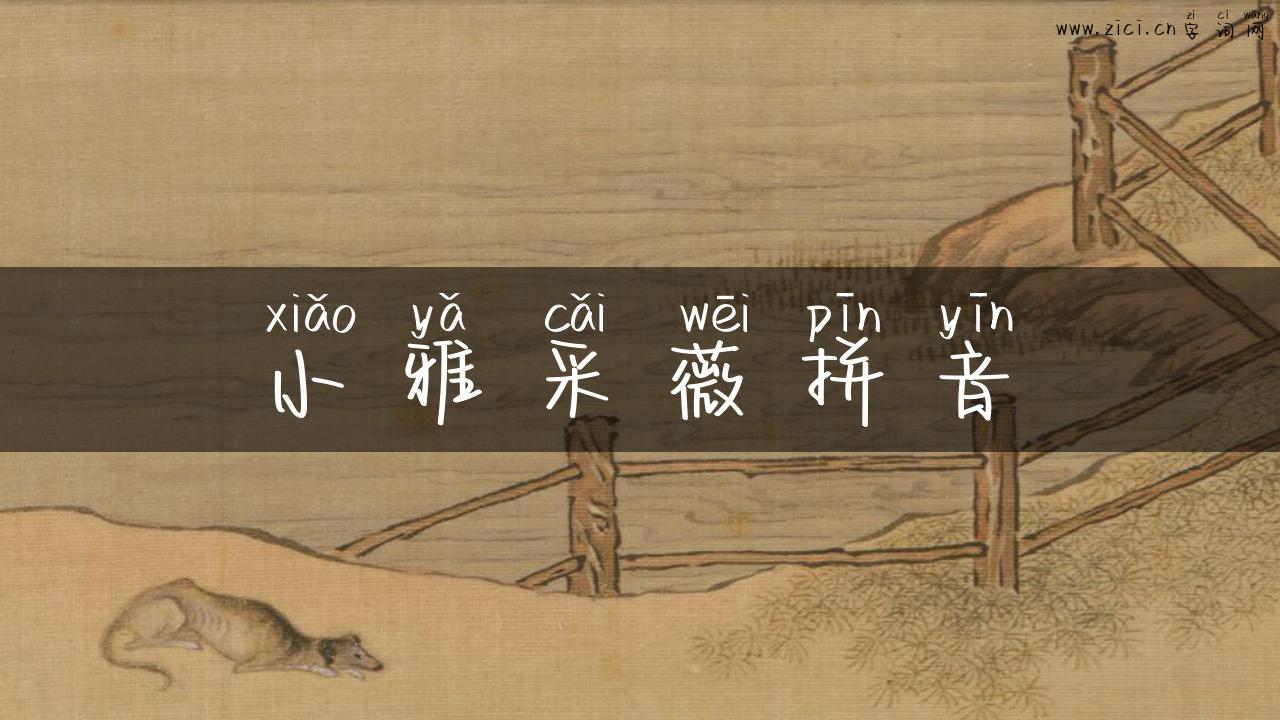 zì cí wǎng
www.zici.cn 字词网
xiǎo yǎ cǎi wēi pīn yīn
小雅采薇拼音